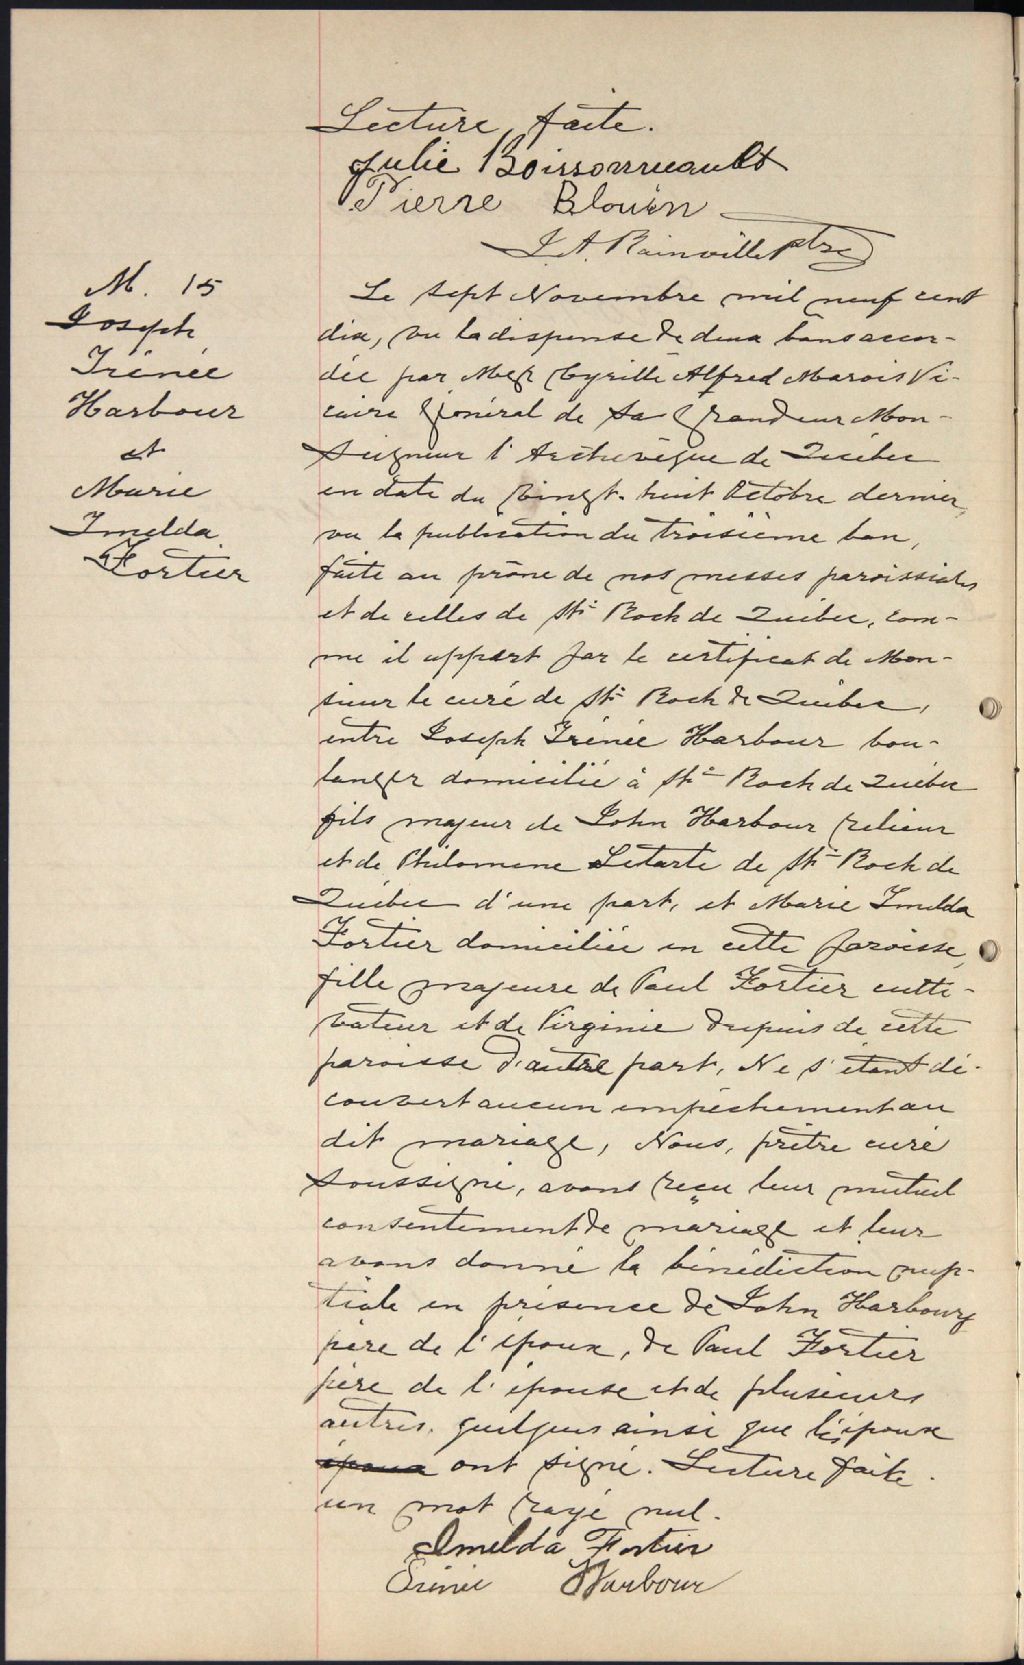 Lecture faite.
Julie Boissonneault
Pierre Blouin
J. A. Rainville ptre
M. 15
Joseph
Irénée
Harbour
et
Marie
Imelda
Fortier
Le sept Novembre mil neuf cent
dix, vu la dispense de deux bans accor-
dée par Mgr Cyrille Alfred Marois Vi-
caire Général de Sa Grandeur Mon-
seigneur l'Archevêque de Québec
en date du vingt-huit Octobre dernier,
vu la publication du troisième ban,
faite au prône de nos messes paroissiales
et de celles de St-Roch de Québec, com-
me il appert par le certificat de Mon-
sieur le curé de St-Roch de Québec,
entre Joseph Irénée Harbour bou-
langer domicilié à St-Roch de Québec
fils majeur de John Harbour relieur
et de Philomene Letarte de St-Roch de
Québec d'une part, et Marie Imelda
Fortier domiciliée en cette paroisse,
fille majeure de Paul Fortier culti-
vateur et de Virginie Dupuis de cette
paroisse d'autre part, Ne s'étant dé-
couvert aucun empêchement au
dit mariage, Nous, prêtre curé
soussigné, avons reçu leur mutuel
consentement de mariage et leur
avons donné la bénédiction nup-
tiale en présence de John Harbour
père de l'époux, de Paul Fortier
père de l'épouse et de plusieurs
autres, quelques ainsi que les époux
époux ont signé. Lecture faite.
un mot rayé nul.
Imelda Fortier
Irénée Harbour